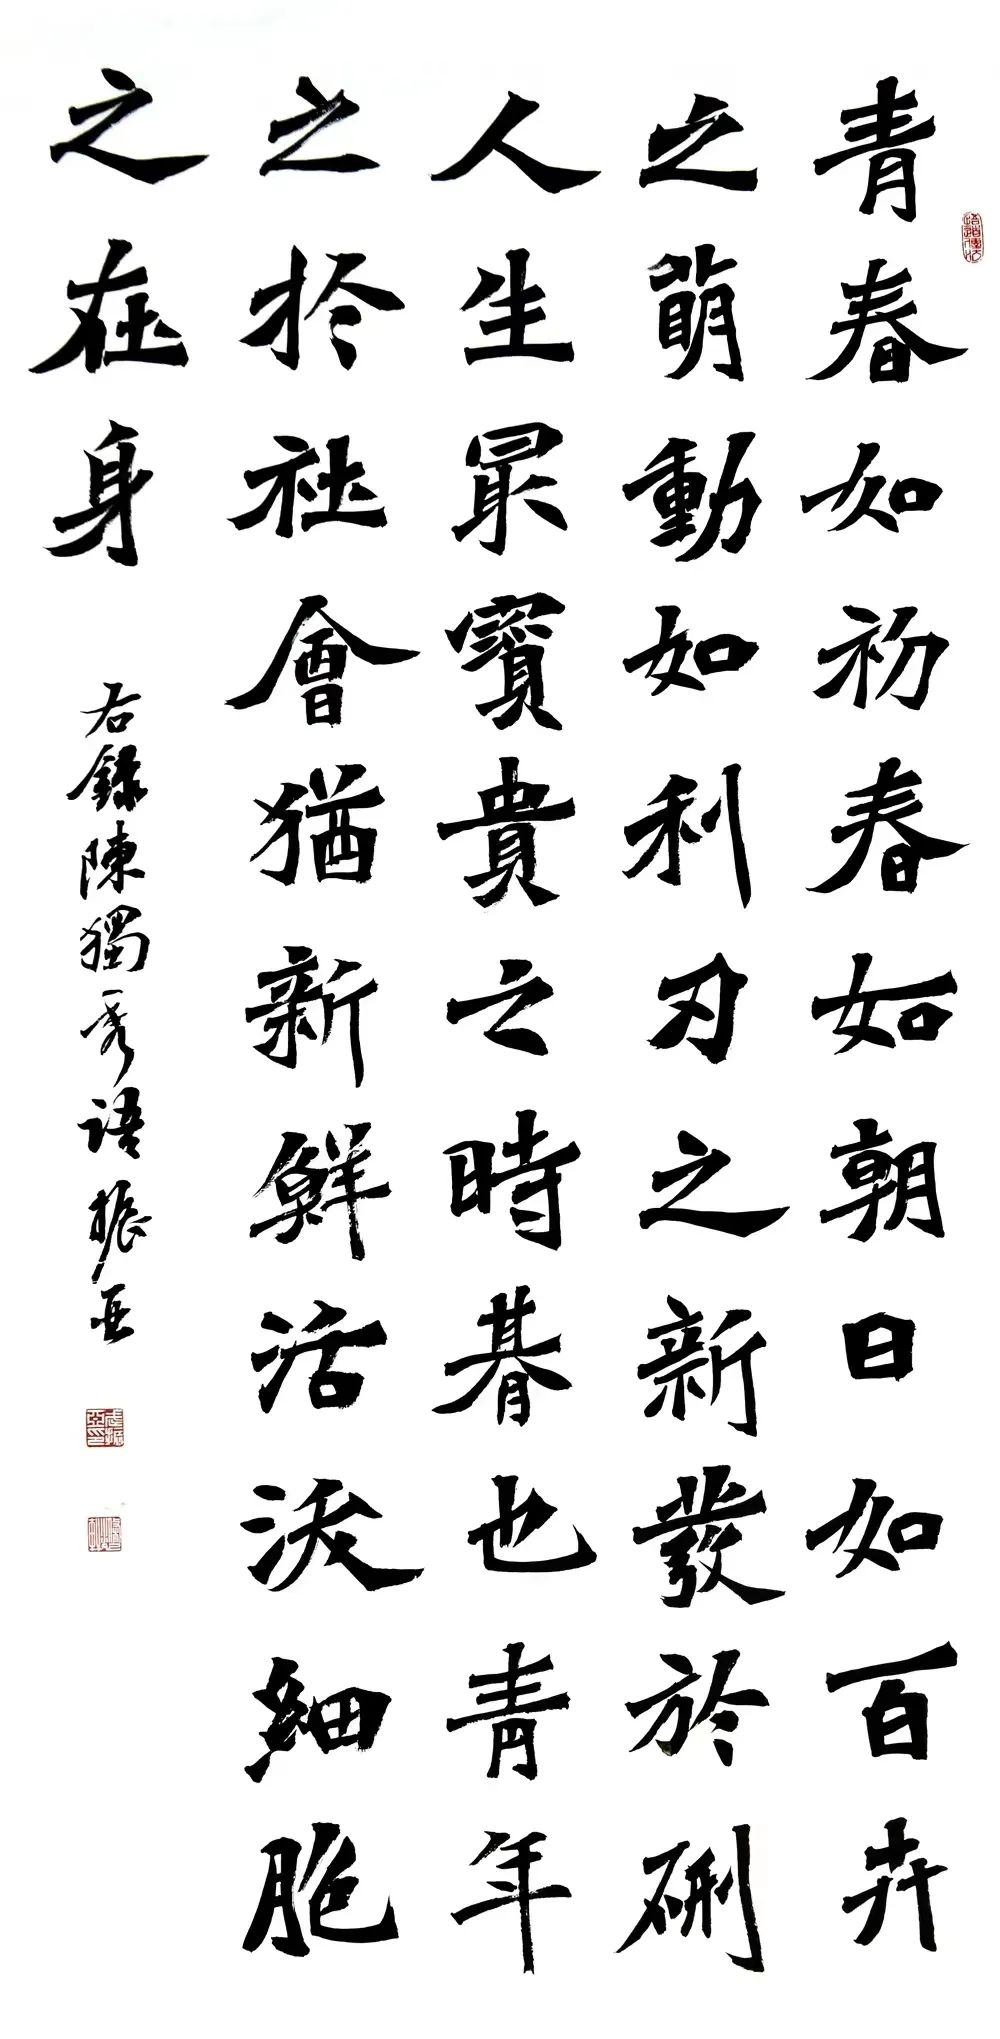 青春如初春如朝日如百卉
之萌動如利刃之新發於硎
人生最寶貴之時朞也青年
之扵社會猶新鮮活泼細胞
之在身
右錄陳獨秀語振亞